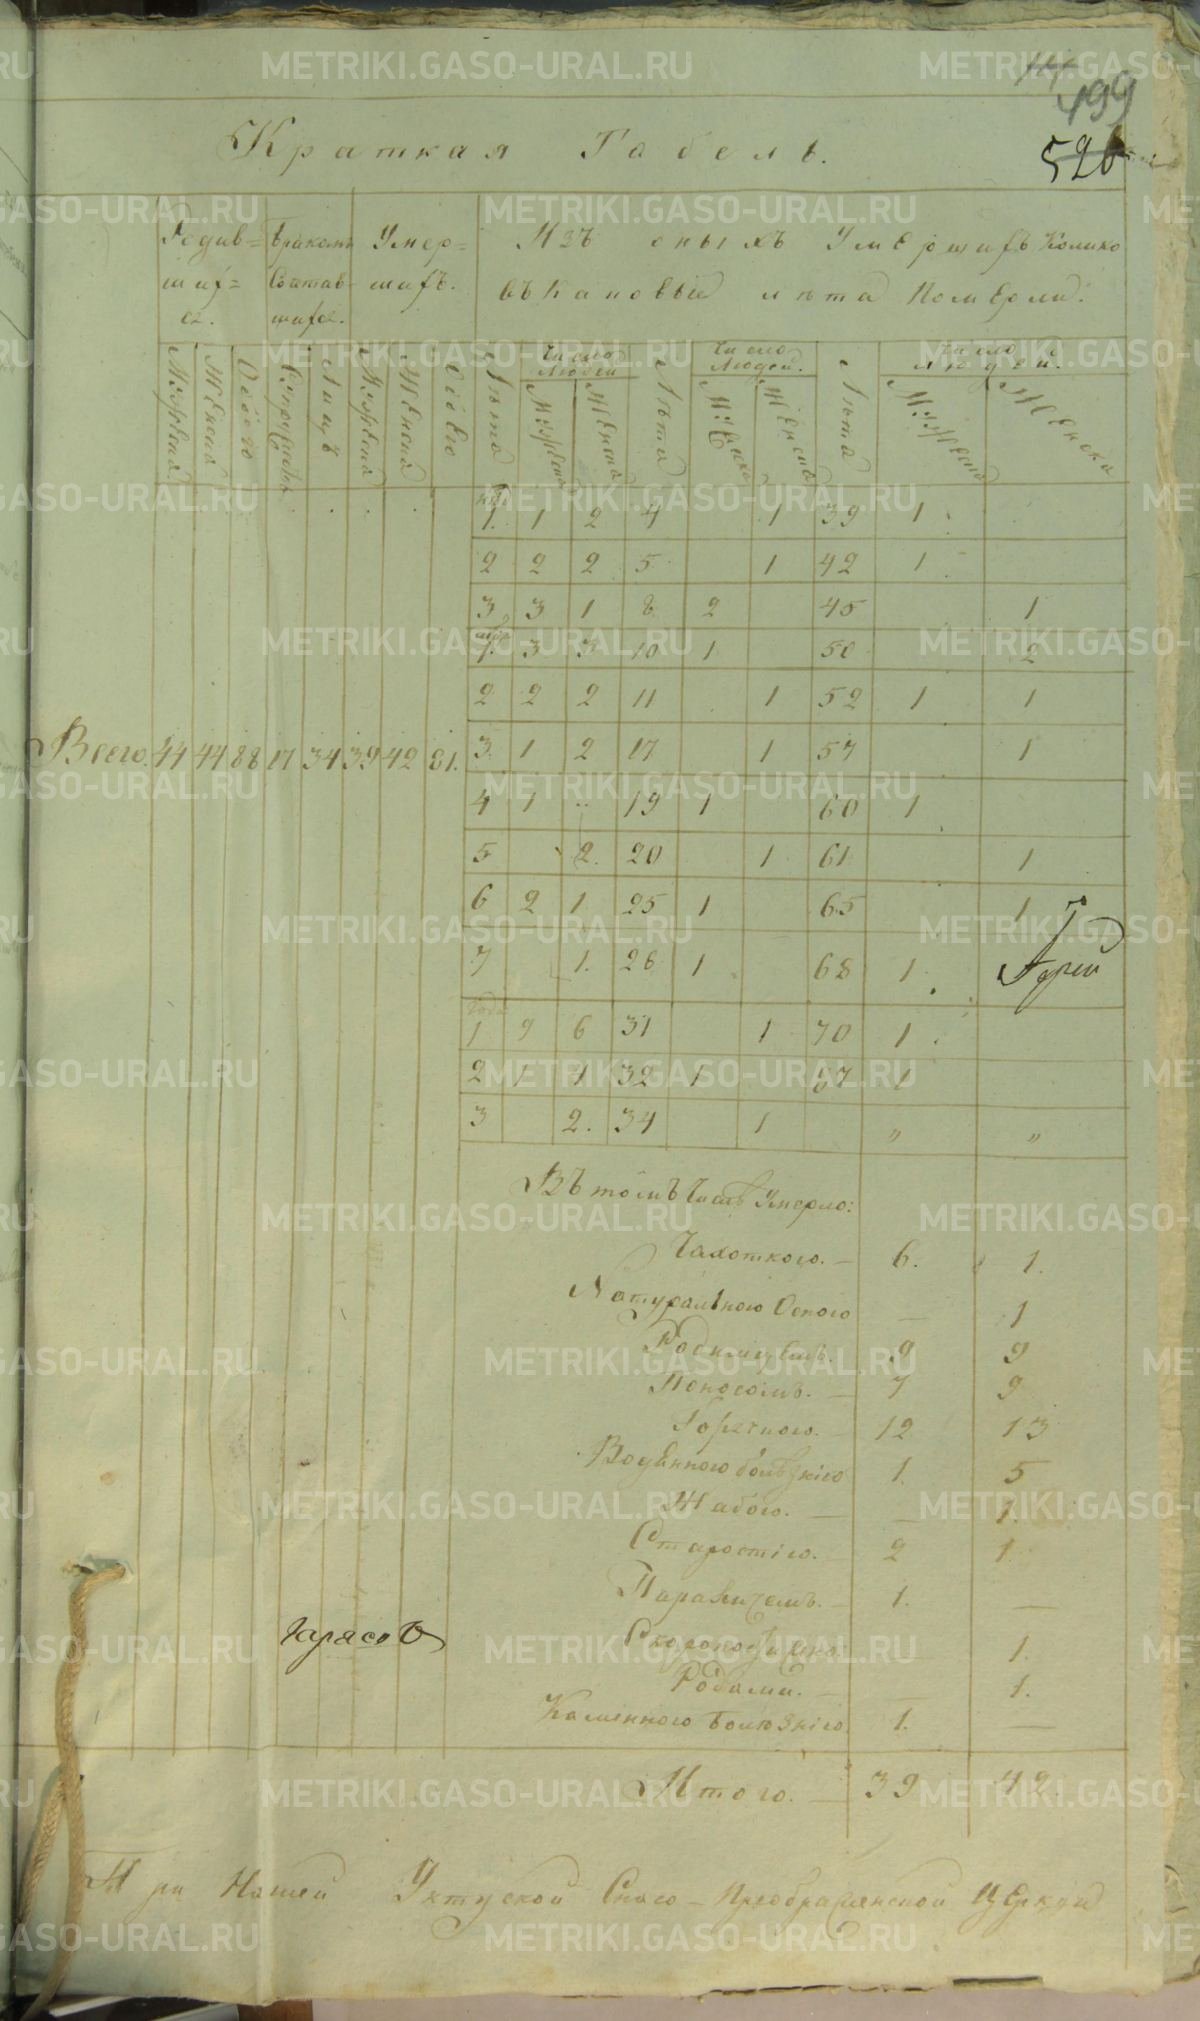 199
526
Краткая Табель.
Родив= Бракомъ Умер= Изъ оныхъ Умершихъ Колико
ших= Сочтав- шихъ. въ каковые лѣта Померли.
ся. шихся.
Число Людей Число Людей. Число Людей.
Мужеска Женска Обоего Супружествъ Лицъ Мужеска Женска Обоего Лѣта Мужеска Женска Лѣта Мужеска Женска Лѣта Мужеска Женска
1. 1 2 4 1 39 1
2 2 2 5 1 42 1
3 3 1 8 2 45 1
1. 3 3 10 1 50 2
2 2 2 11 1 52 1 1
Всего. 44 44 88 17 34 39 42 81. 3. 1 2 17 1 57 1
4 1 " 19 1 60 1
5 2. 20 1 61 1
6 2 1 25 1 65 1
7 1. 26 1 68 1
Года
1 9 6 31 1 70 1
2 1 4 32 1 87 1
3 2. 34 1 " "
Въ томъ числѣ Умерло:
Чахоткою. — 6. 1.
Натуральною Оспою — 1
Родимцемъ. 9 9
Поносомъ. — 7 9
Горячкою. — 12 13
Водяною болѣзнію 1. 5
Жабою. — — 1.
Старостію. 2 1
Параличемъ. — 1. —
Скоропостижно 1.
Родами. — — 1.
Каменною Болезнію 1. —
Тарасов
Итого. — 39 42.
При Нашей Уктуской Спасо-Преображенской Церкви
METRIKI.GASO-URAL.RU